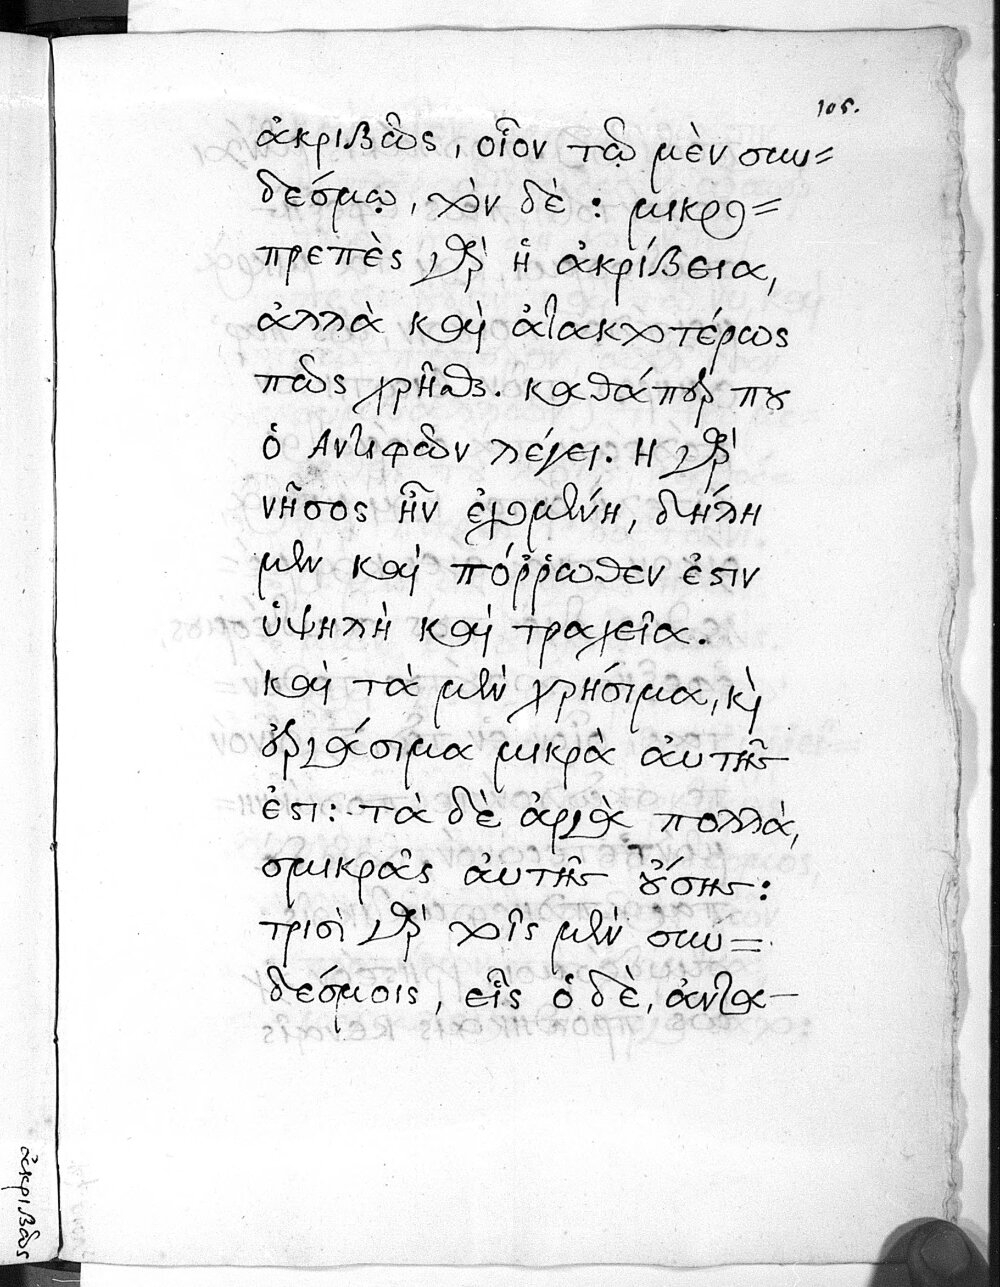 105.
ἀκριβῶς, οἷον τῷ μὲν συν=
δέσμῳ, τὸν δὲ: μικρο=
πρεπὲς γὰρ ἡ ἀκρίβεια,
ἀλλὰ καὶ ἀτακτοτέρως
πῶς χρῆσθαι. καθάπερ που
ὁ Ἀντιφῶν λέγει: Ἡ γὰρ
νῆσος ἣν ἔχομεν, δήλη
μὲν καὶ πόῤῥωθεν ἐστιν
ὑψηλὴ καὶ τραχεῖα.
καὶ τὰ μὲν χρήσιμα, καὶ
ἐργάσιμα μικρὰ αὐτῆς
ἐστι: τὰ δὲ ἀργὰ πολλὰ,
σμικρᾶς αὐτῆς οὔσης:
τρισὶ γὰρ τοῖς μὲν συν=
δέσμοις, εἷς ὁ δὲ, ἀντα-
ἀκριβῶς